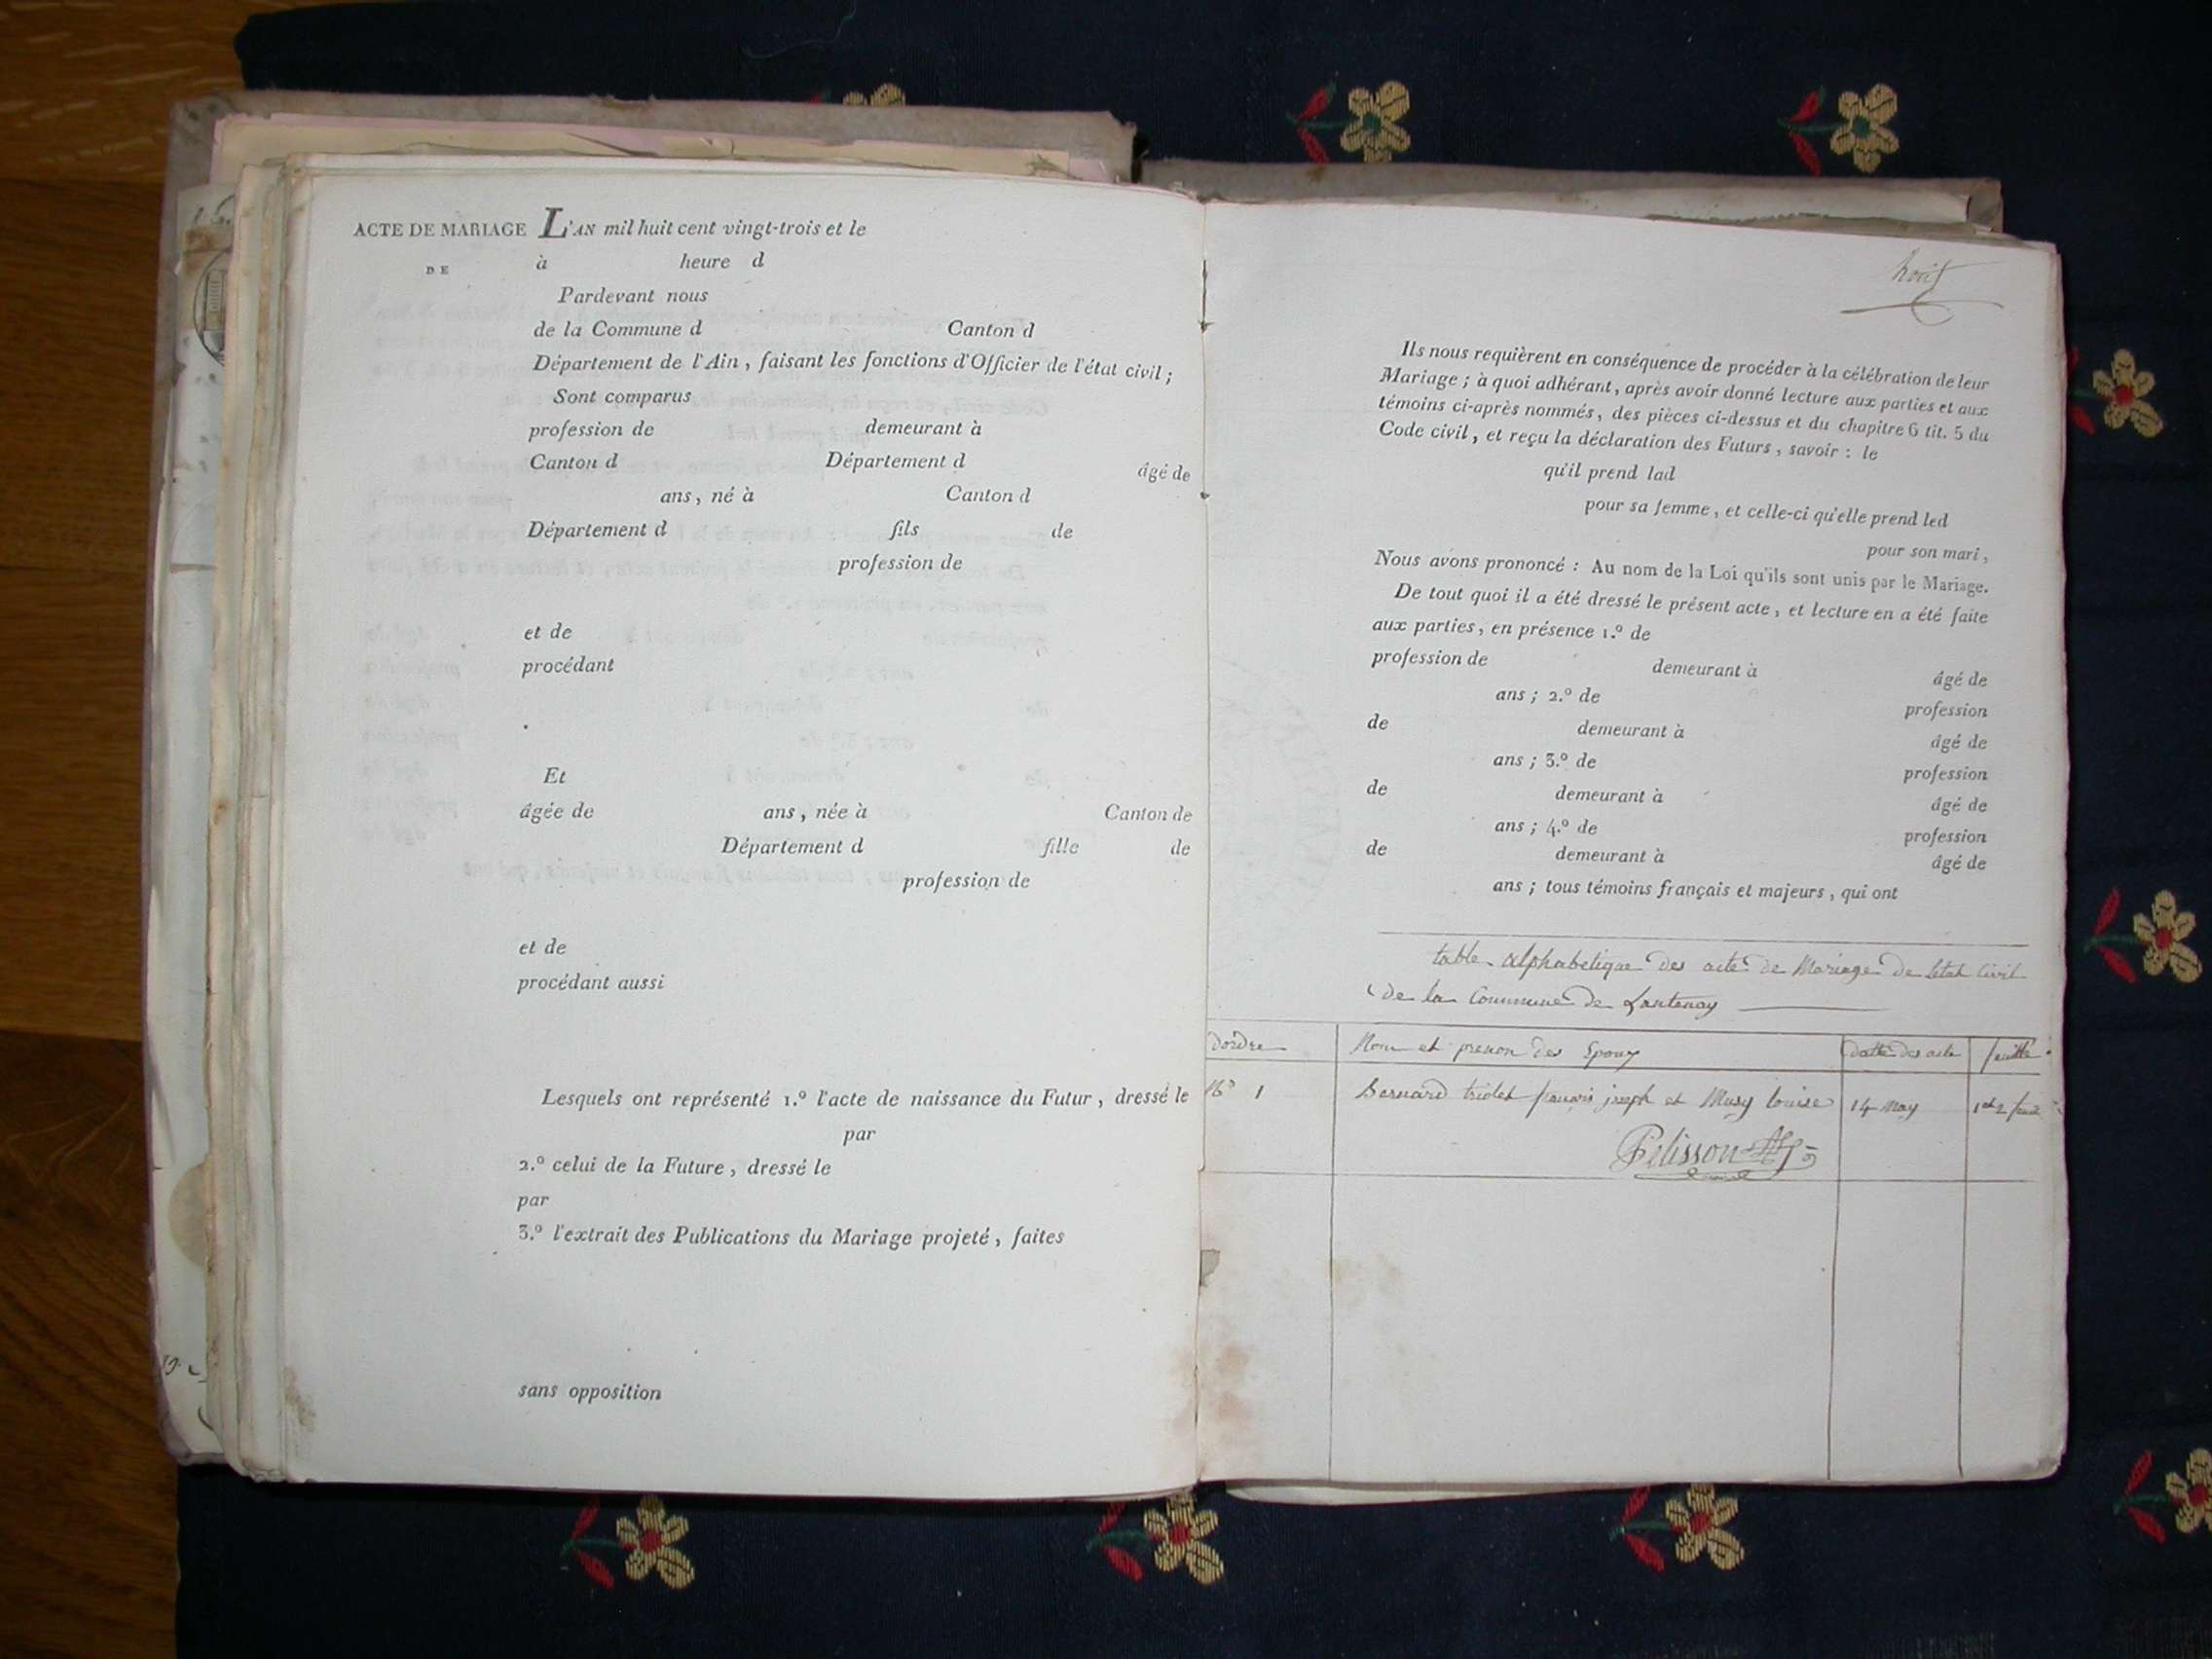 ACTE DE MARIAGE L'AN mil huit cent vingt-trois et le
DE à heure d
Pardevant nous
de la Commune d Canton d
Département de l'Ain, faisant les fonctions d'Officier de l'état civil;
Sont comparus
profession de demeurant à
Canton d Département d âgé de
ans, né à Canton d
Département d fils de
profession de
et de
procédant
Et
âgée de ans, née à Canton de
Département d fille de
profession de
et de
procédant aussi
Lesquels ont représenté 1.º l'acte de naissance du Futur, dressé le
par
2.º celui de la Future, dressé le
par
3.º l'extrait des Publications du Mariage projeté, faites
sans opposition
Ils nous requièrent en conséquence de procéder à la célébration de leur
Mariage; à quoi adhérant, après avoir donné lecture aux parties et aux
témoins ci-après nommés, des pièces ci-dessus et du chapitre 6 tit. 5 du
Code civil, et reçu la déclaration des Futurs, savoir: le
qu'il prend lad
pour sa femme, et celle-ci qu'elle prend led
pour son mari,
Nous avons prononcé: Au nom de la Loi qu'ils sont unis par le Mariage.
De tout quoi il a été dressé le présent acte, et lecture en a été faite
aux parties, en présence 1.º de
profession de demeurant à âgé de
ans; 2.º de profession
de demeurant à âgé de
ans; 3.º de profession
de demeurant à âgé de
ans; 4.º de profession
de demeurant à âgé de
ans; tous témoins français et majeurs, qui ont
table alphabetique des acte de Mariage de letat Civil
de la Commune de Lantenay
Dordre Nom et prenon des Epoux datte des acte feuille
1 Bernard triolet françois joseph et Musy louise 14 may 1 et 2
Pelisson